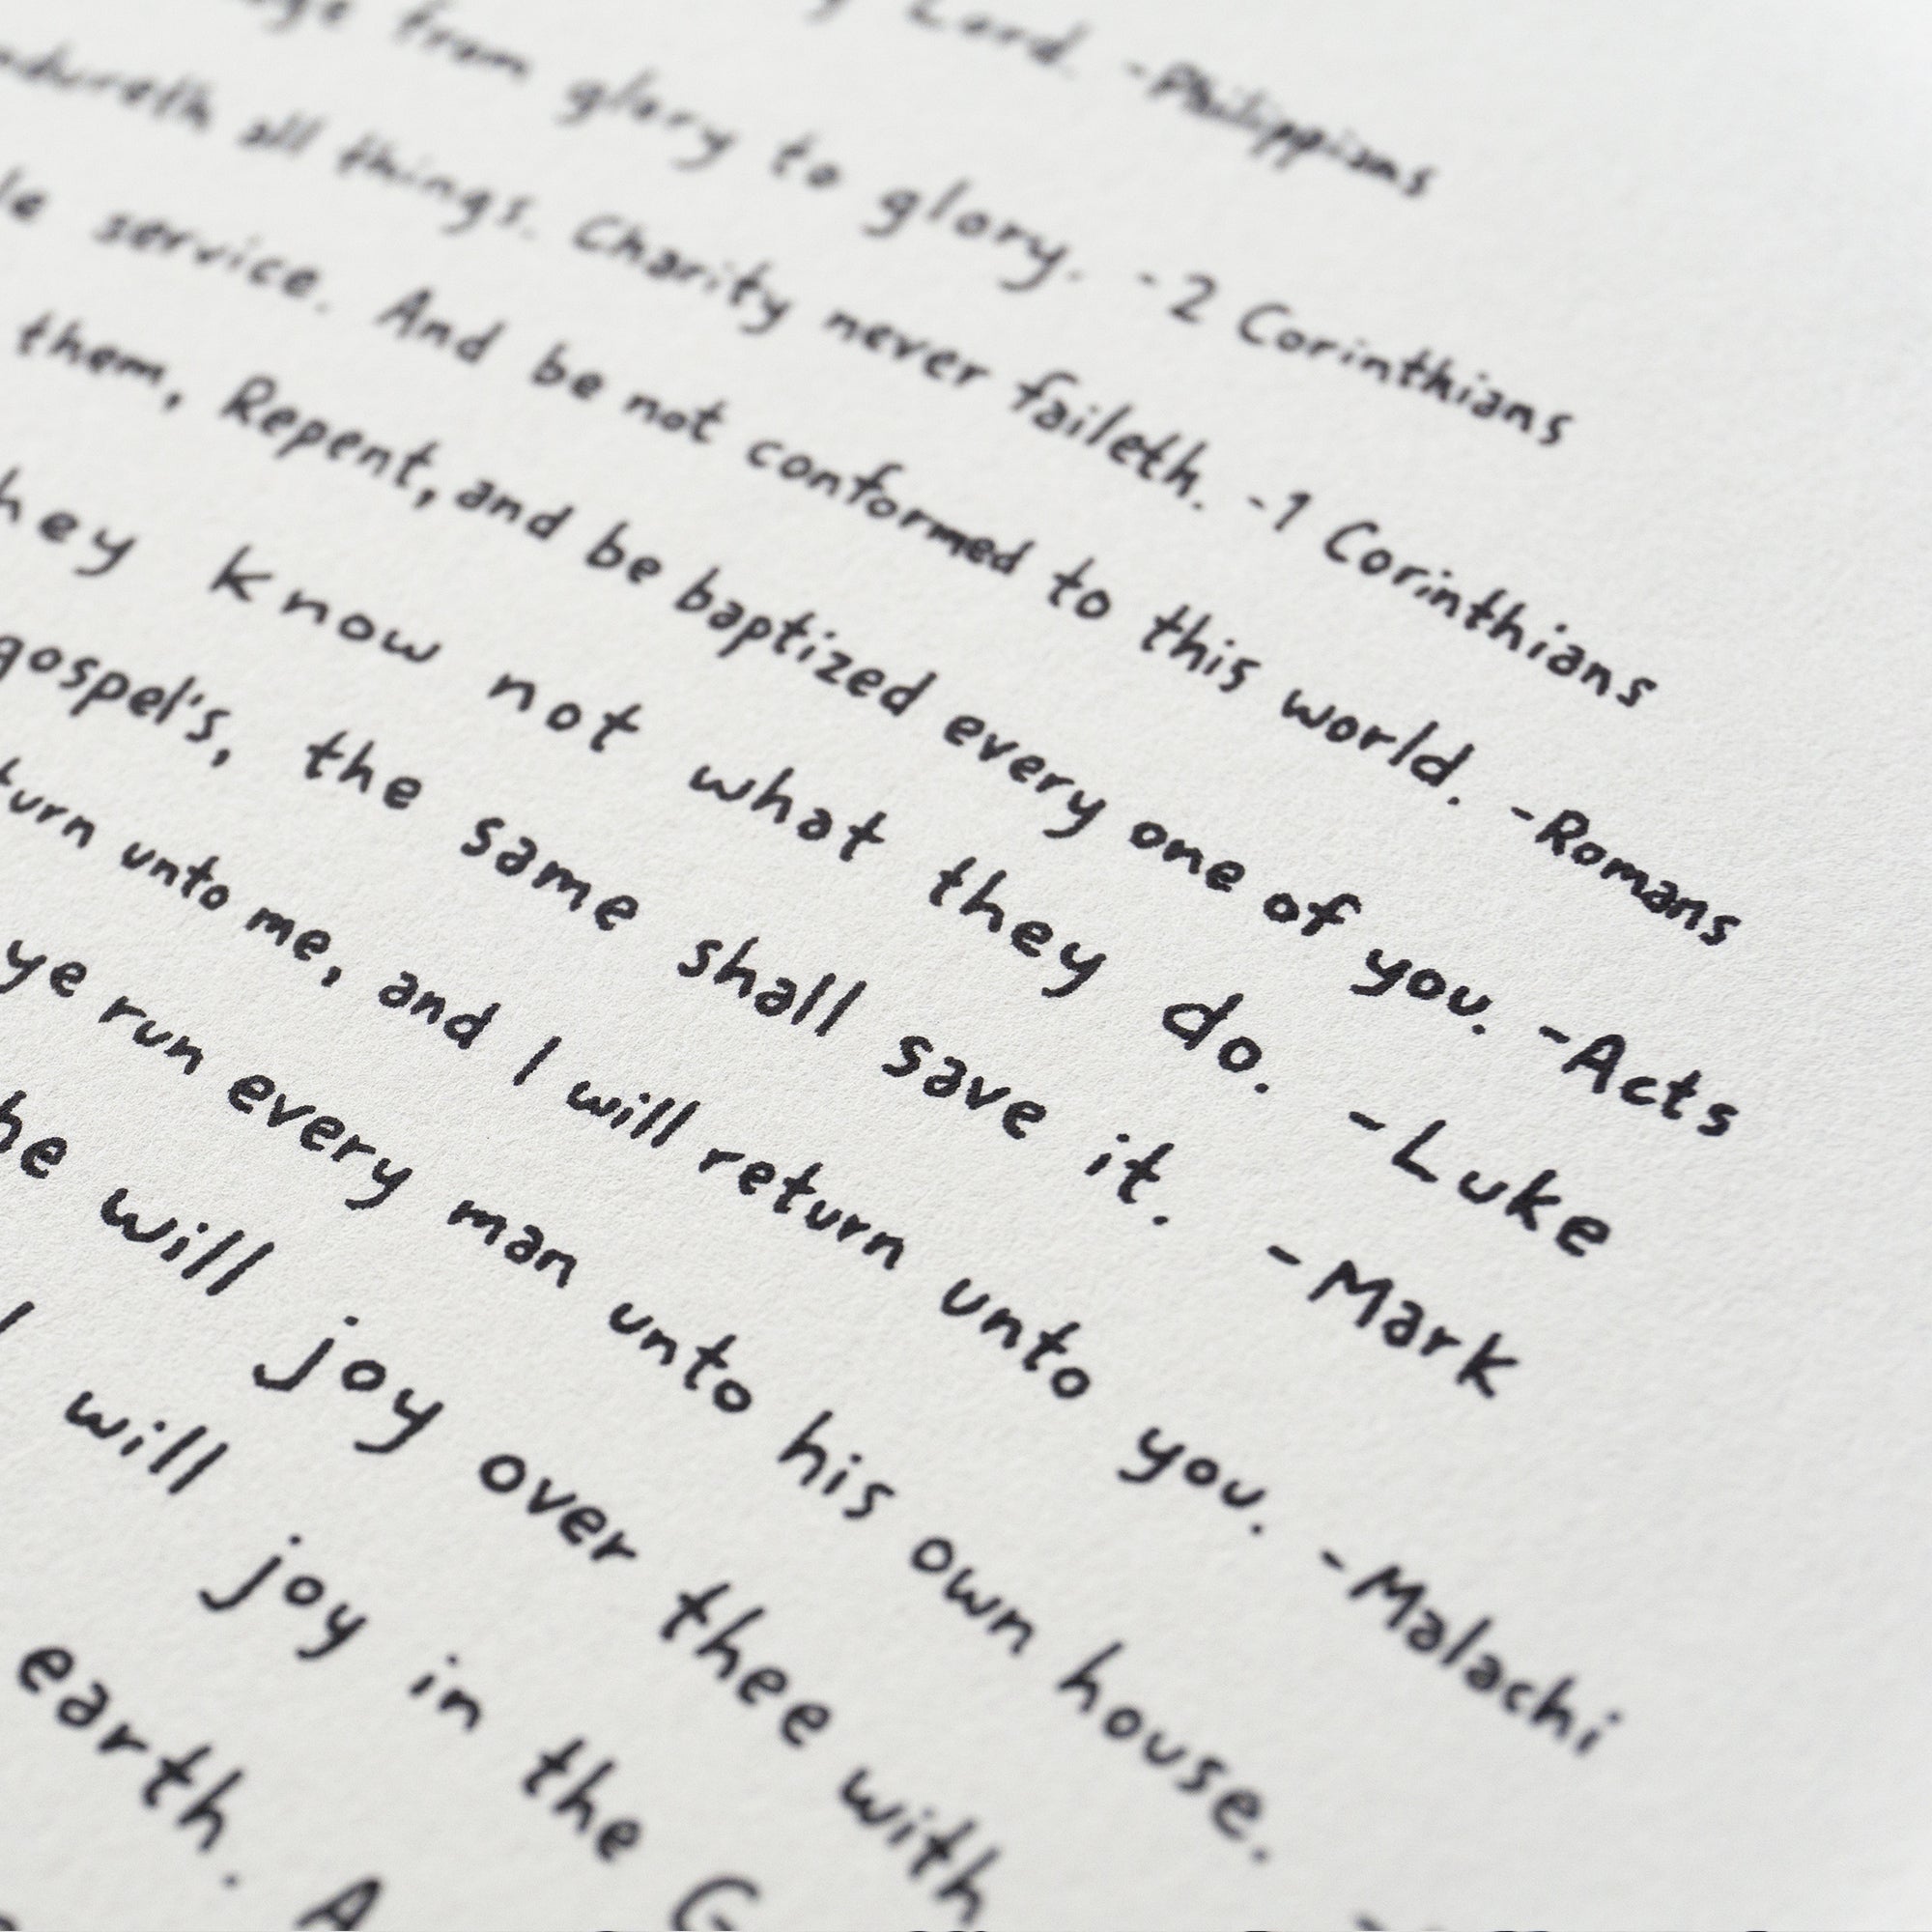 Lord. -Philippians
from glory to glory. -2 Corinthians
all things. Charity never faileth. -1 Corinthians
service. And be not conformed to this world. -Romans
them, Repent, and be baptized every one of you. -Acts
know not what they do. -Luke
gospel's, the same shall save it. -Mark
turn unto me, and I will return unto you. -Malachi
ye run every man unto his own house.
he will joy over thee with
will joy in the G
earth. A